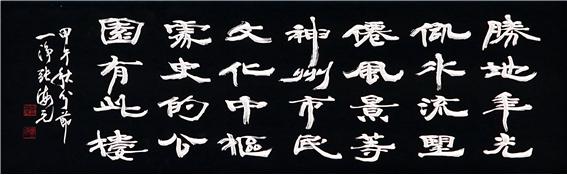 勝地年光
水流
僊風景等
神州市民
文化中樞
史的公
園有此樓
甲午秋分節
一淨張海元